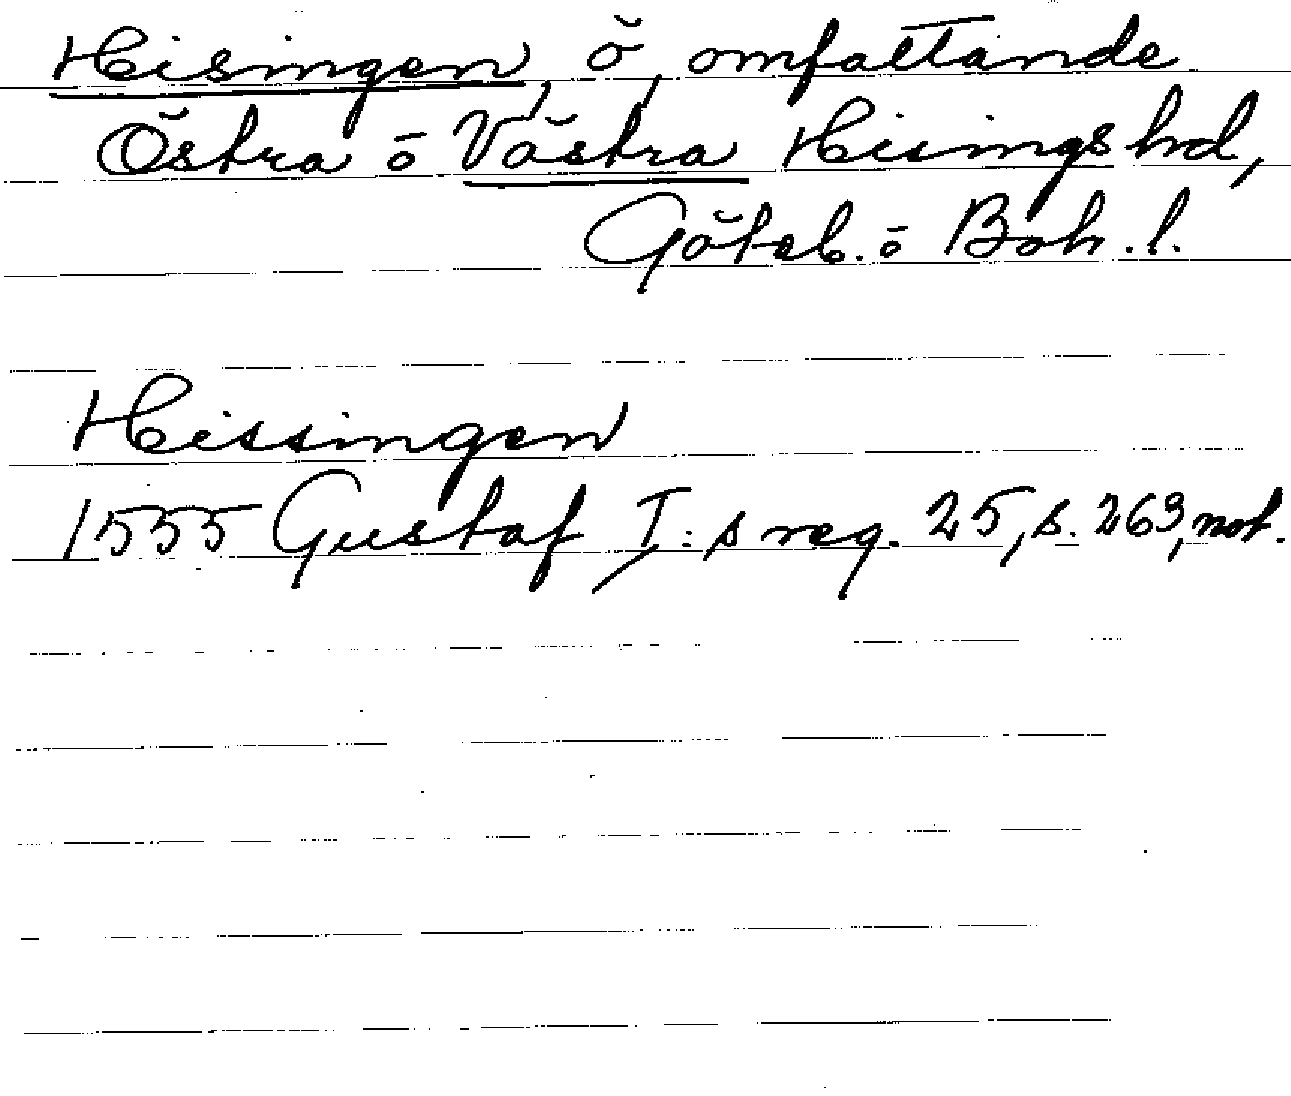 Hisingen, ö, omfattande
Östra o Västra Hisings hd,
Göteb. o Boh. l.
Hissingen
1555 Gustaf I:s reg. 25, s. 263, not.